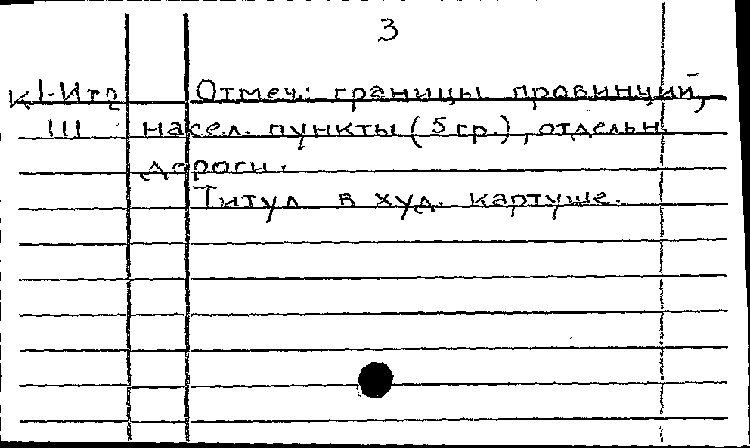 3
К1-Ит2 Отмеч.: границы провинций,
III насел. пункты (5 гр.), отдельн.
дороги.
Титул в худ. картуше.